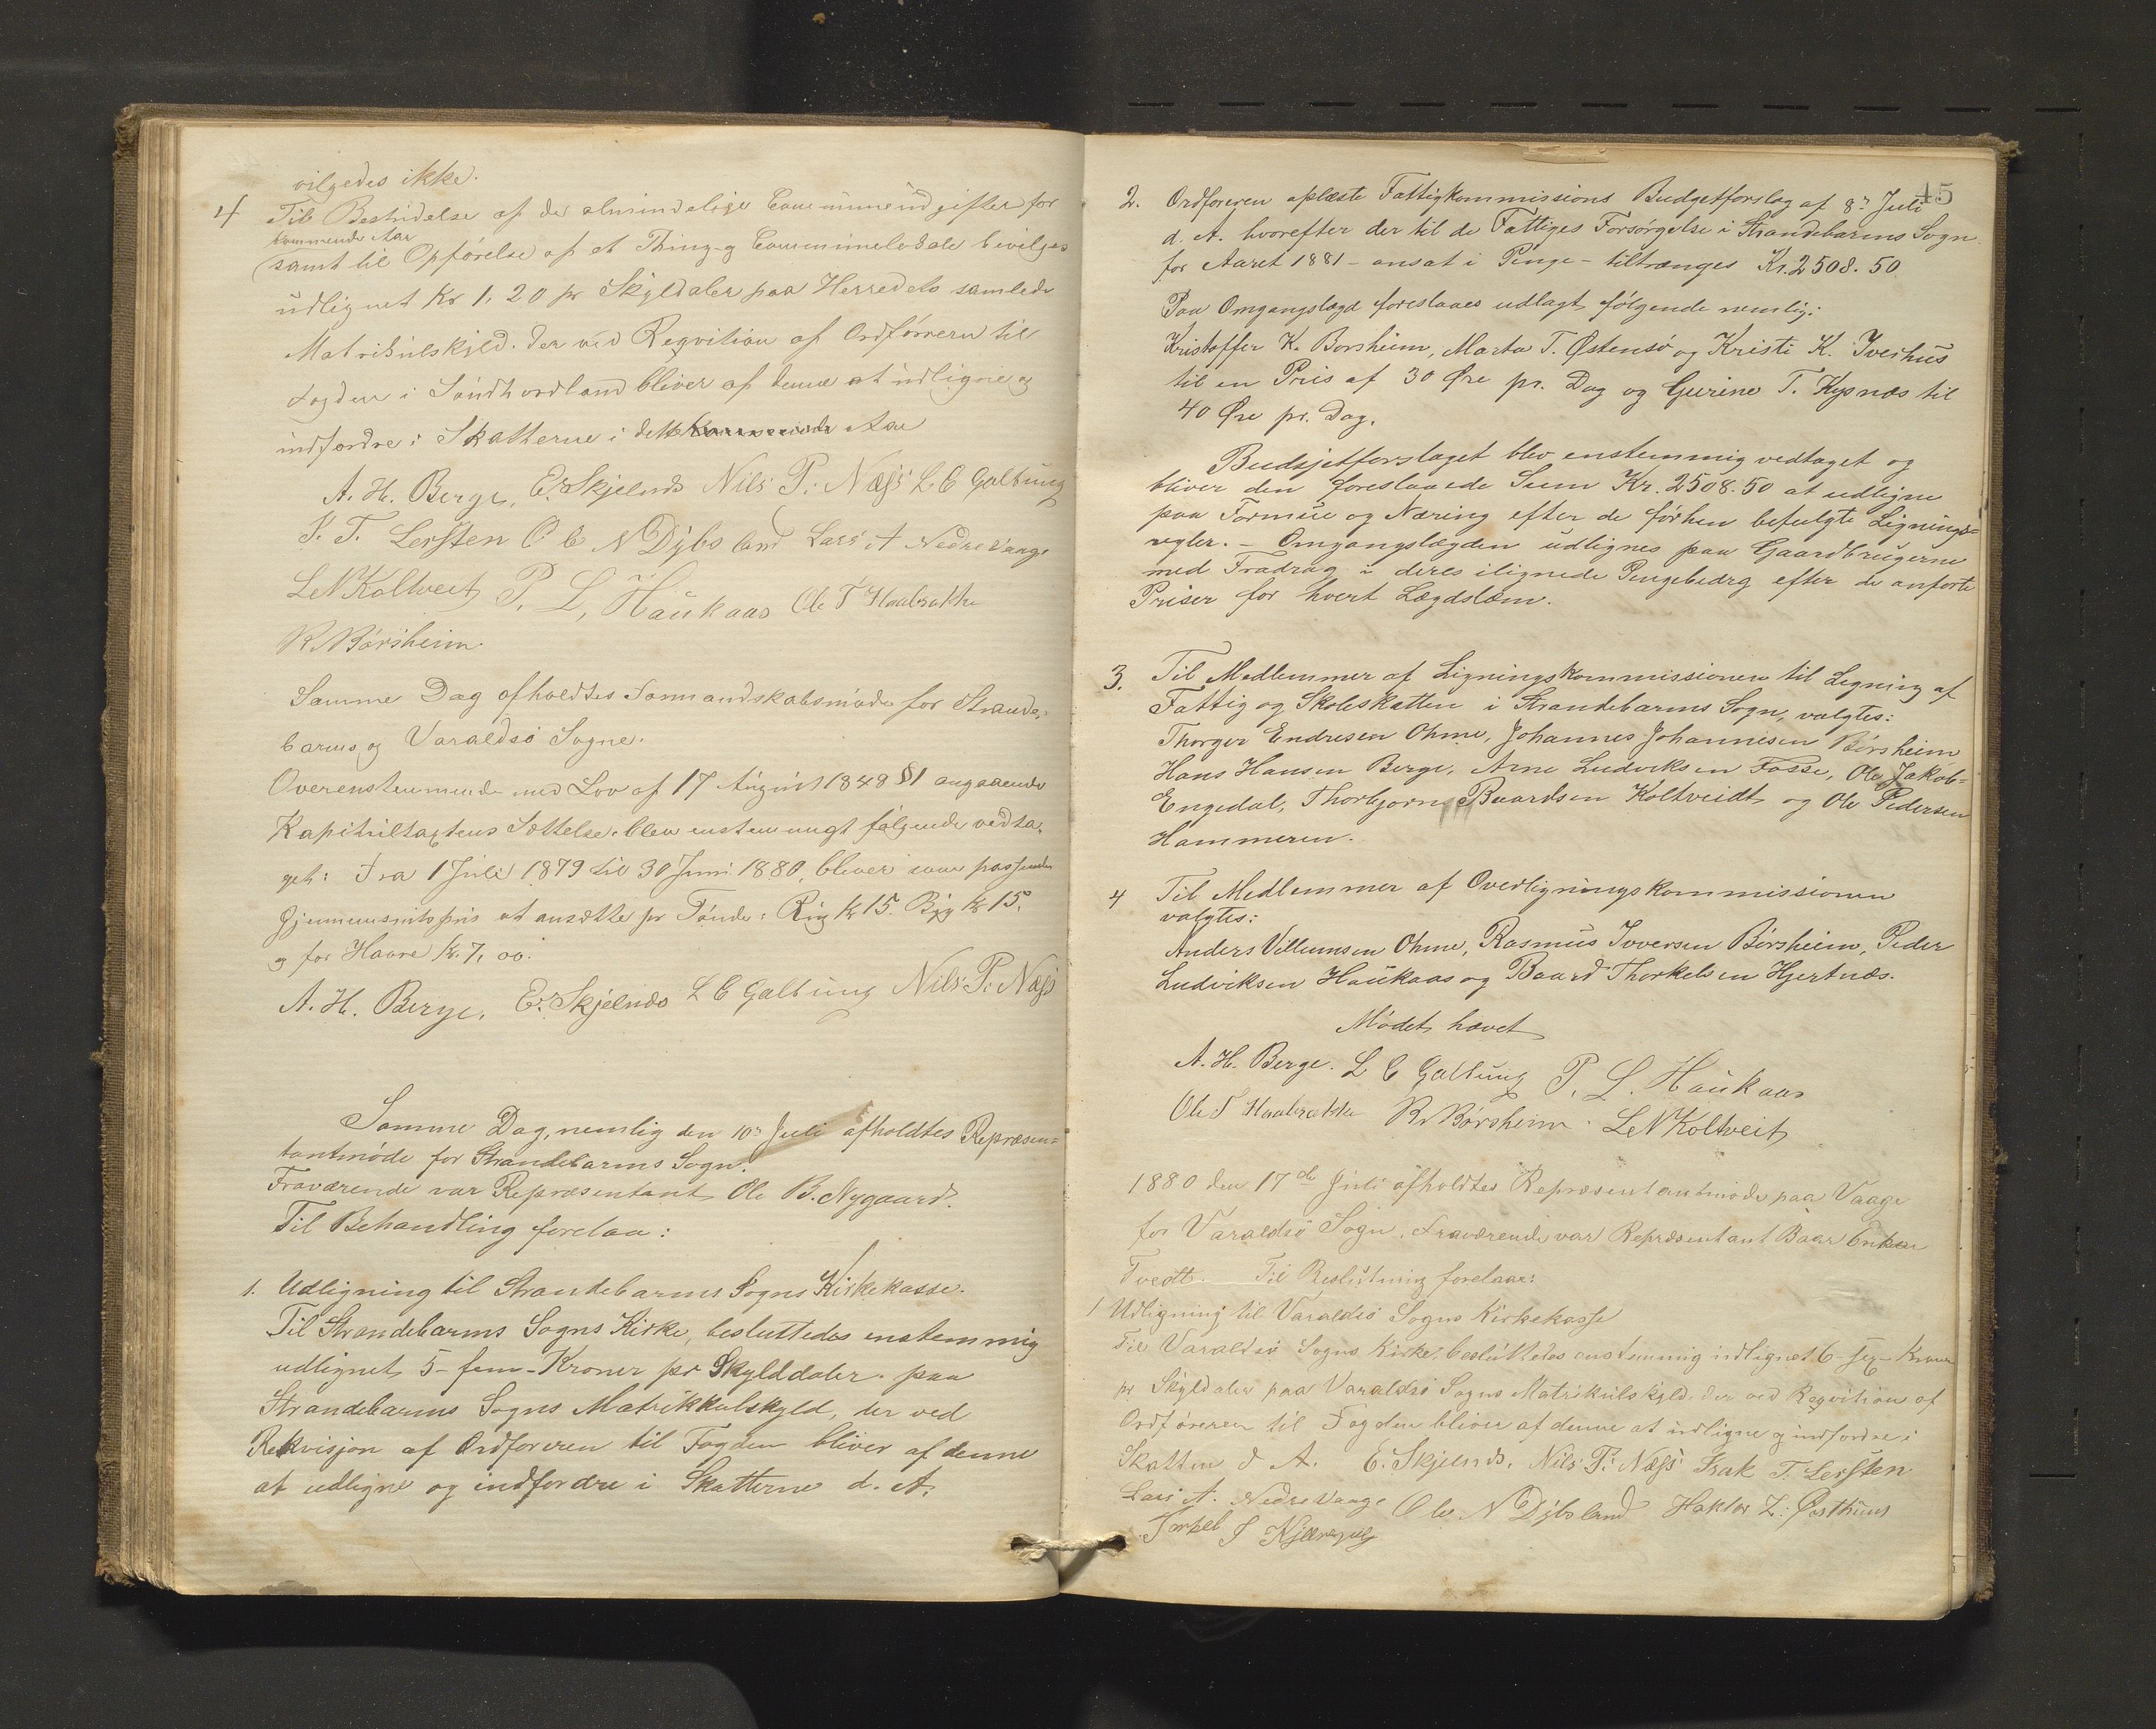 vilgedes ikke.
4 Til Bestridelse af de almindelige Communeudgifter for
kommende Aar
samt til Opførelse af et Thing- og Communelokale bevilges
udlignet Kr 1,20 pr Skyldaler paa Herredets samlede
Matrikulskyld. der ved Reqvition af Ordføreren til
Fogden i Søndhordland bliver af denne at udligne og
indfordre i Skatterne i dette kommende Aar
A. H. Berge, E. Skjelnæs Nils P. Næss L. C Galtung
I. T. Lersten O l e N Dybsland Lars A Nedre Vaage
L N Koltveit P. L, Haukaas Ole T Haabrække
R I Børsheim.
Samme Dag afholdtes Formandskabsmøde for Strande-
barms og Varaldsø Sogne.
Overenstemmende med Lov af 17 August 1848 § 1 angaaende
Kapitultaxtens Sættelse blev enstemmigt følgende vedta-
get: Fra 1 Juli 1879 til 30 Juni 1880, bliver som passende
Gjennemsnitspris at ansætte pr Tønde: Rug Kr 15. Byg Kr 15.
og for Havre Kr. 7, 00.
A. H. Berge, E. Skjelnæs L C Galtung Nils P. Næss
Samme Dag, nemlig den 10de Juli afholdtes Repræsen-
tantmøde for Strandebarms Sogn.
Fraværende var Repræsentant Ole B. Nygaard.
Til Behandling forelaa:
1. Udligning til Strandebarms Sogns Kirkekasse.
Til Strandebarms Sogns Kirke, besluttedes enstemmig
udlignet 5 - fem - Kroner pr Skylddaler paa
Strandebarms Sogns Matrikkulskyld, der ved
Rekvisjon af Ordføreren til Fogden bliver af denne
at udligne og indfordre i Skatterne d. A.
45
2. Ordføreren oplæste Fattigkommissions Budgetforslag af 8de Juli
d. A. hvorefter der til de Fattiges Forsørgelse i Strandebarms Sogn
for Aaret 1881 - ansat i Penge - tiltrænges Kr. 2508.50.
Paa Omgangslægd foreslaaes udlagt følgende nemlig:
Kristoffer K. Borsheim, Marta T. Østensø og Kristi K. Tveihus
til en Pris af 30 Øre pr. Dag og Gurine T. Kysnæs til
40 Øre pr. Dag.
Budsjetforslaget blev enstemmig vedtaget og
bliver den foreslaaede Sum Kr. 2508.50 at udligne
paa Formue og Næring efter de førhen befulgte Lignings-
regler. - Omgangslægden udlignes paa Gaardbrugerne
med Fradrag i deres ilignede Pengebidrg efter de anførte
Priser for hvert Lægdslæm.
3. Til Medlemmer af Ligningskommissionen til Ligning af
Fattig og Skoleskatten i Strandebarms Sogn, valgtes:
Thorger Endresen Ohme, Johannes Johannesen Børsheim
Hans Hansen Berge, Arne Ludviksen Fosse, Ole Jakob-
Engedal, Thorbjørn Baardsen Koltveidt og Ole Pedersen
Hammeren.
4 Til Medlemmer af Overligningskommissionen
valgtes:
Anders Villumsen Ohme, Rasmus Iversen Børsheim, Peder
Ludviksen Haukaas og Baard Thorkelsen Hjertnæs.
Mødet hævet
A. H. Berge. L C Galtung P. L. Haukaas
Ole T Haabrække R I Børsheim. L N Koltveit
1880 den 17de Juli afholdtes Repræsentantmøde paa Vaage
for Varaldsø Sogn, Fraværende var Repræsentant Baar
Tvedt. Til Beslutning forelaae:
1 Udligning til Varaldsø Sogns Kirkekasse
Til Varaldsø Sogns Kirke besluttedes enstemmig udlignet 6 - sex - Kroner
pr Skyldaler paa Varaldsø Sogns Matrikulskyld. der ved Reqvition af
Ordføreren til Fogden bliver af denne at udligne og indfordre i
Skatten d A. E. Skjelnæs. Nils P. Næss Isak T. Lersten
Lars A. Nedre Vaage Ole N Dybsland Haktor L. Østhuus
Torkel